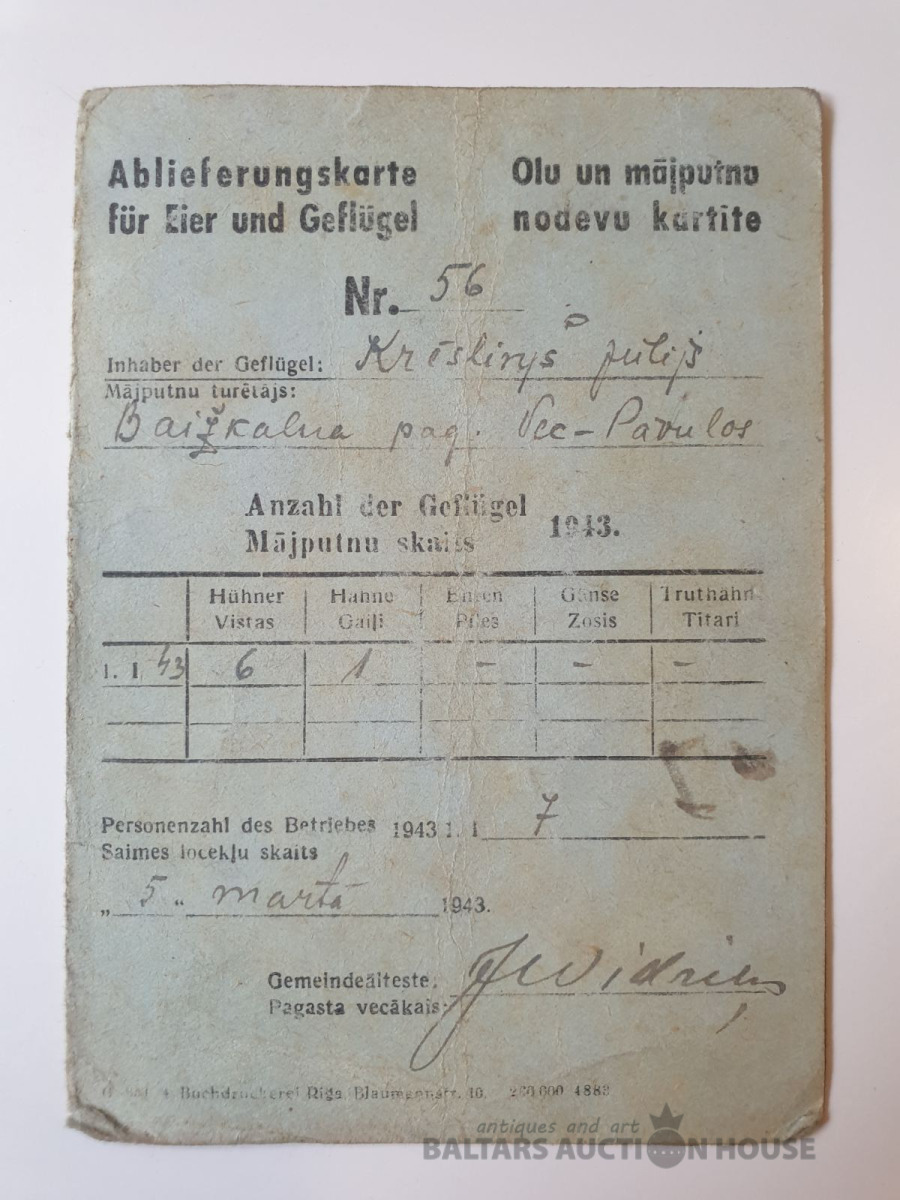 Ablieferungskarte
für Eier und Geflügel
Olu un mājputnu
nodevu kartīte
Nr. 56
Inhaber der Geflügel: Krēsliņš Jūlijs
Mājputnu turētājs:
Baižkalna pag. Vec-Pāvulos
Anzahl der Geflügel
Mājputnu skaits
1943.
Hühner Hähne Enten Gänse Truthähn
Vistas Gaiļi Pīles Zosis Tītari
1. I 43 6 1 - - -
Personenzahl des Betriebes 1943 1. I 7
Saimes locekļu skaits
„ 5 “ martā 1943.
Gemeindeälteste:
Pagasta vecākais:
Buchdruckerei Riga, Blaumannstr. 4883
antiques and art
BALTARS AUCTION HOUSE